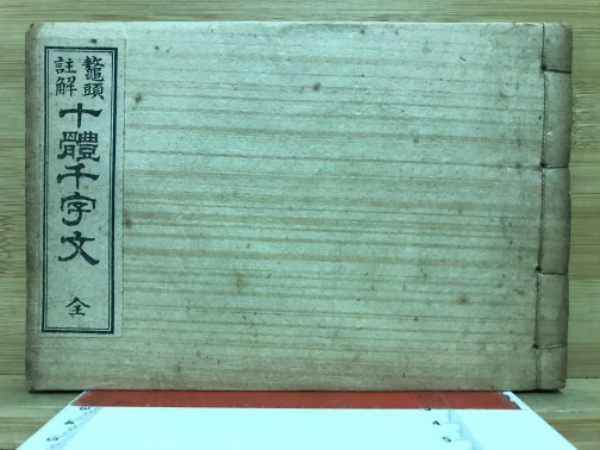 鼇頭
註解
十體千字文
全